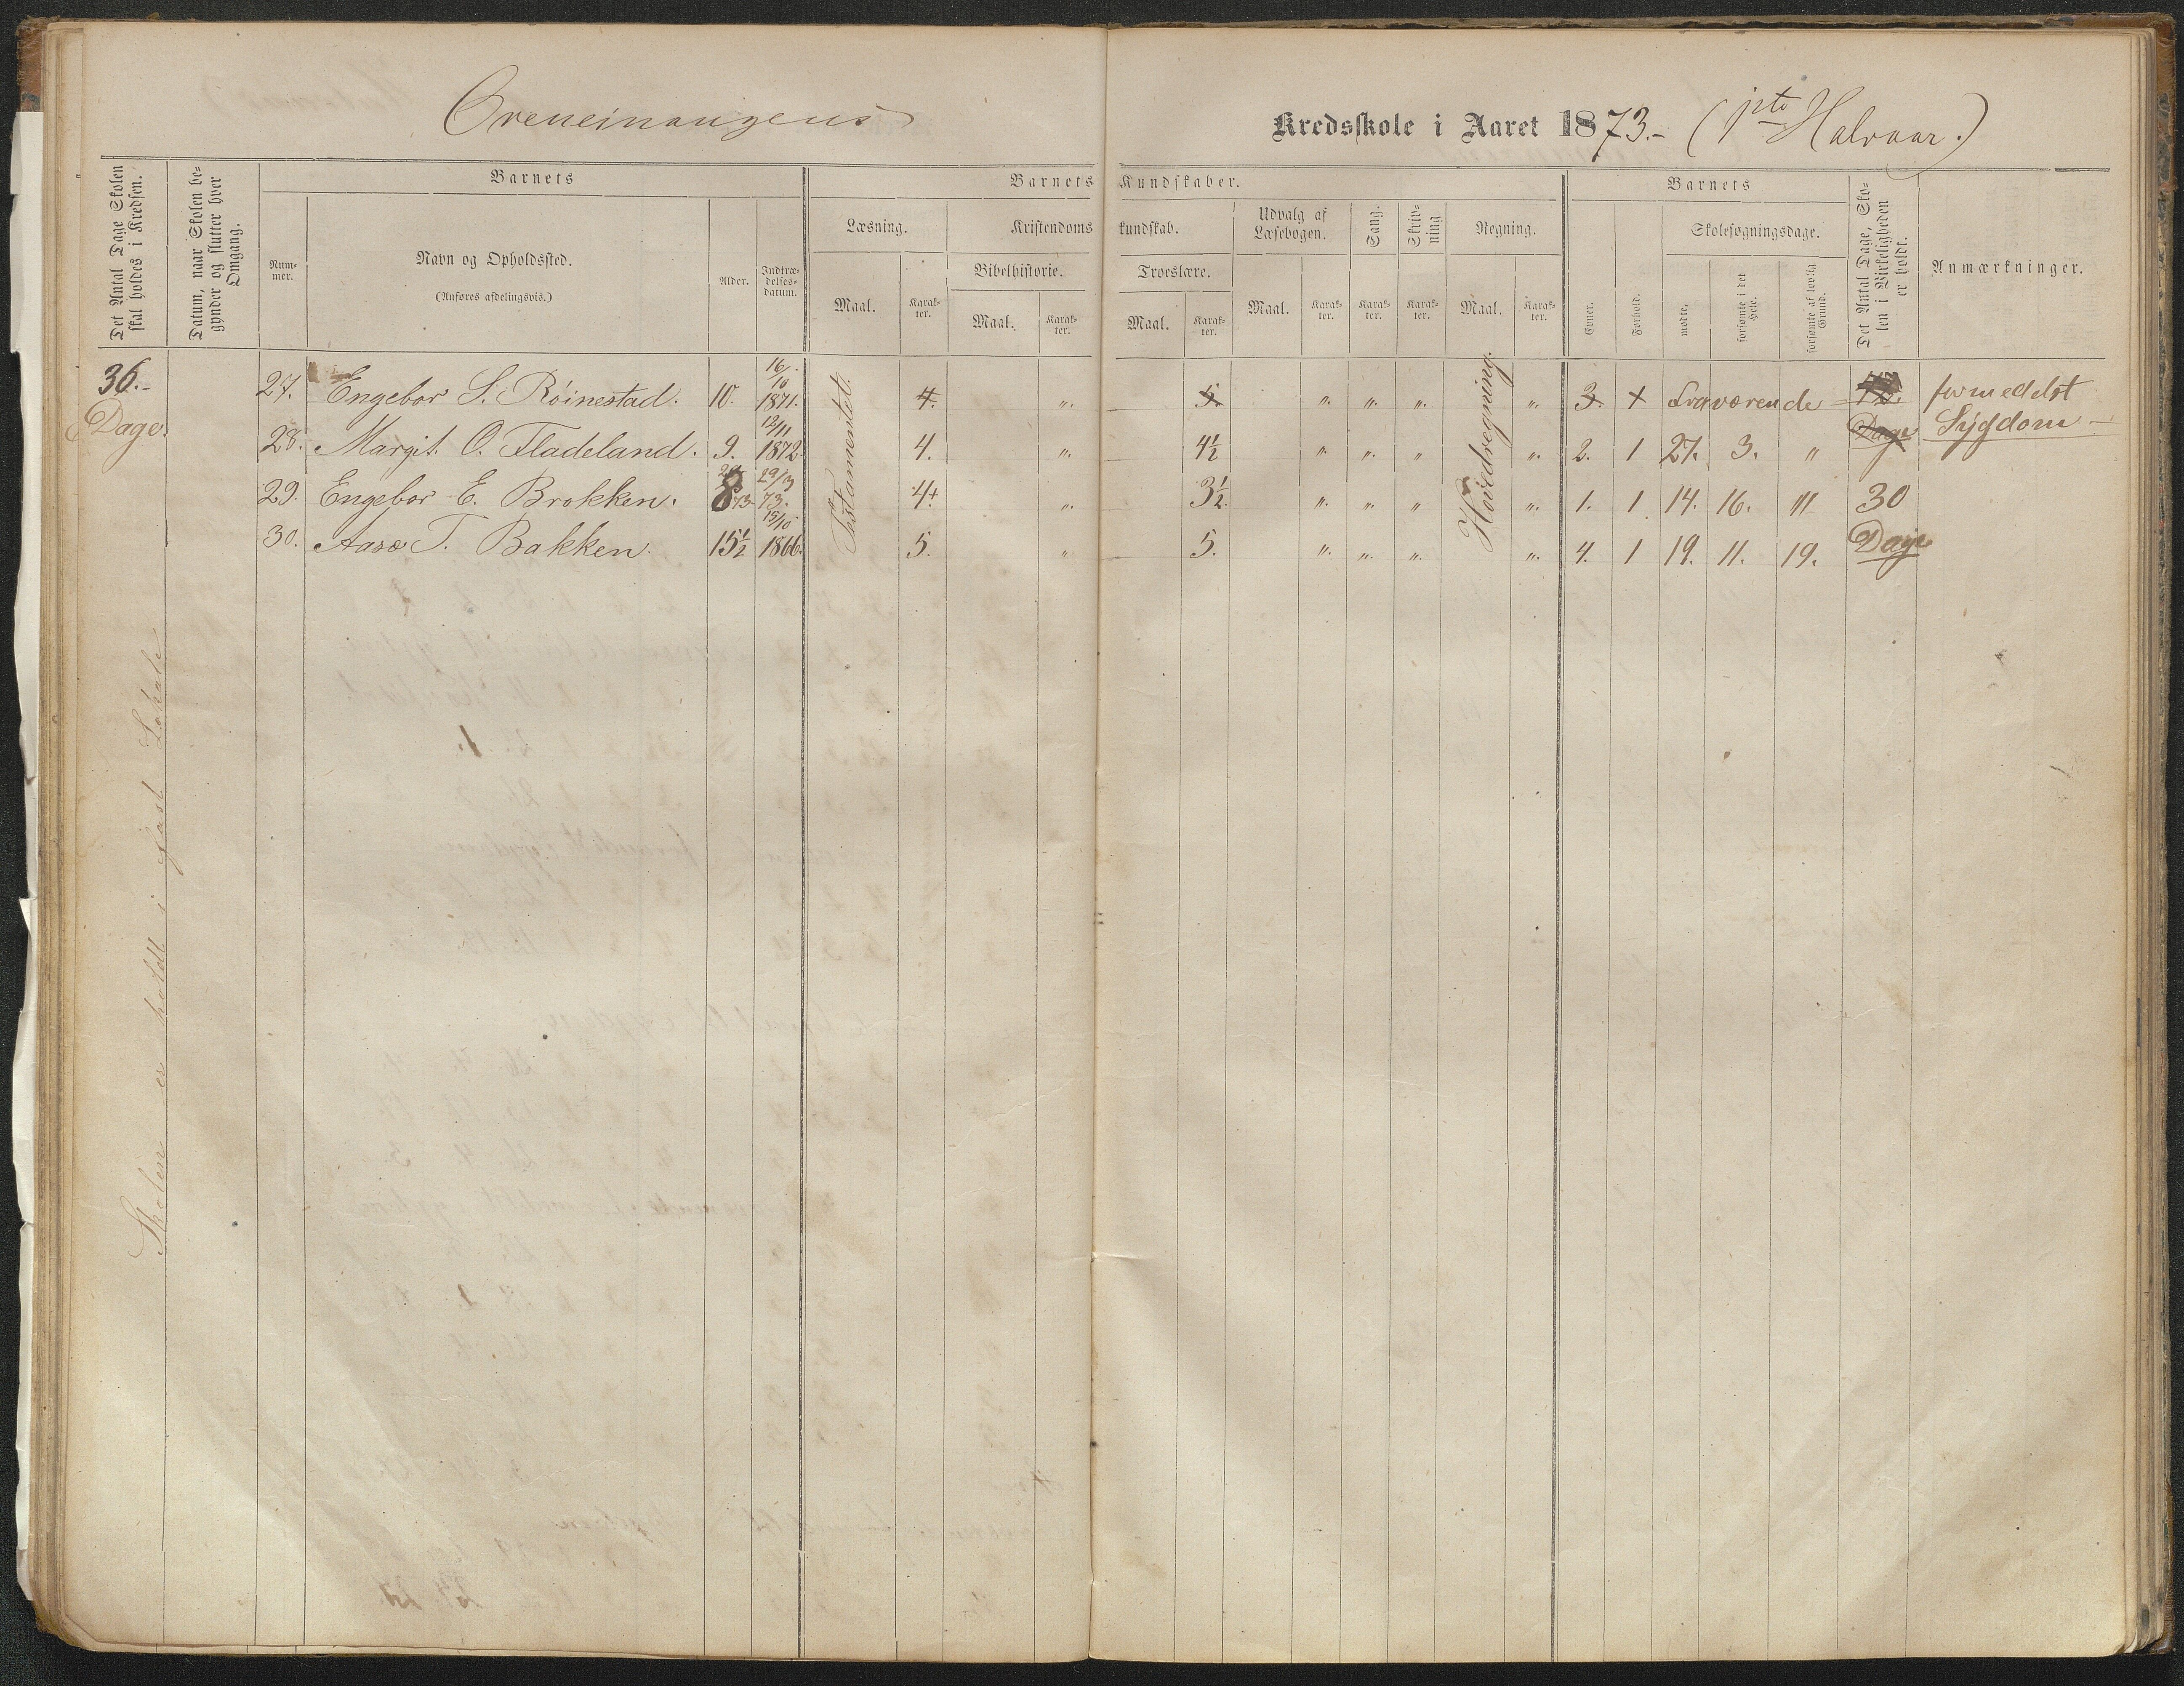 Kredsskole i Aaret 1873.- (1ste Halvaar.)
Det Antal Dage Skolen skal holdes i Kredsen.
Datum, naar Skolen begynder og slutter hver Omgang.
Barnets
Nummer.
Navn og Opholdssted.
(Anføres afdelingsvis.)
Alder.
Indtrædelsesdatum.
Barnets Kundskaber.
Læsning.
Maal.
Karakter.
Kristendomskundskab.
Bibelhistorie.
Maal.
Karakter.
Troeslære.
Maal.
Karakter.
Udvalg af Læsebogen.
Maal.
Karakter.
Sang.
Karakter.
Skrivning
Karakter.
Regning.
Maal.
Karakter.
Barnets
Evner.
Forhold.
Skolesøgningsdage.
mødte.
forsømte i det Hele.
forsømte af lovlig Grund.
Det Antal Dage, Skolen i Virkeligheden er holdt.
Anmærkninger.
36.- Dage.
27. Engebor S. Røinestad. 10. 16/10 1871. 4. „ 5. „ „ „ „ 3. + Fraværende formedelst Sygdom
28. Margit O. Fladeland. 9. 12/11 1872. 4. „ 4½ „ „ „ „ 2. 1 27. 3. „
29. Engebor E. Brokken. 8 29/3 73. 4+ „ 3½ „ „ „ „ 1. 1 14. 16. „ 30
30. Aase T. Bakken. 15½ 15/10 1866. 5. „ 5. „ „ „ „ 4. 1 19. 11. 19. Dage
Testamentet.
Hovedregning.
Skolen er holdt i fast Lokale